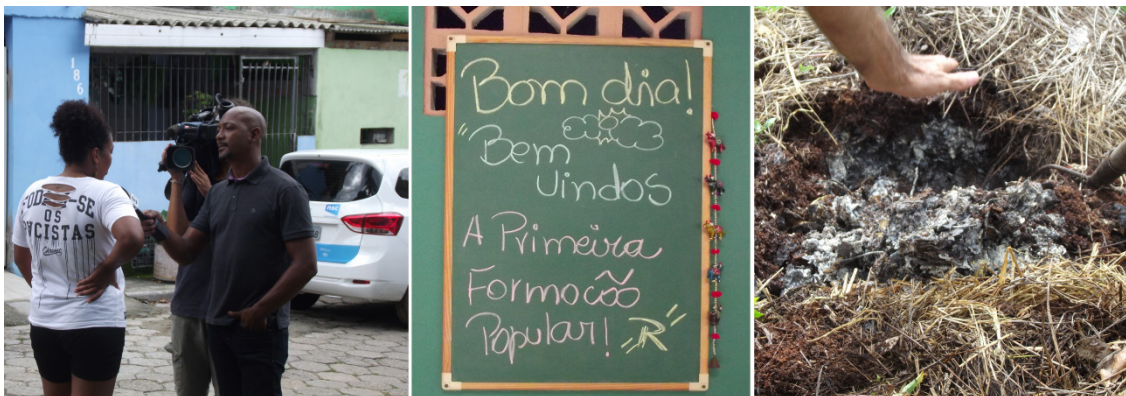 186
FOD -SE
OS
CISTAS
Bom dia!
"Bem
Vindos
A Primeira
Formocöõ
Popular! "R"